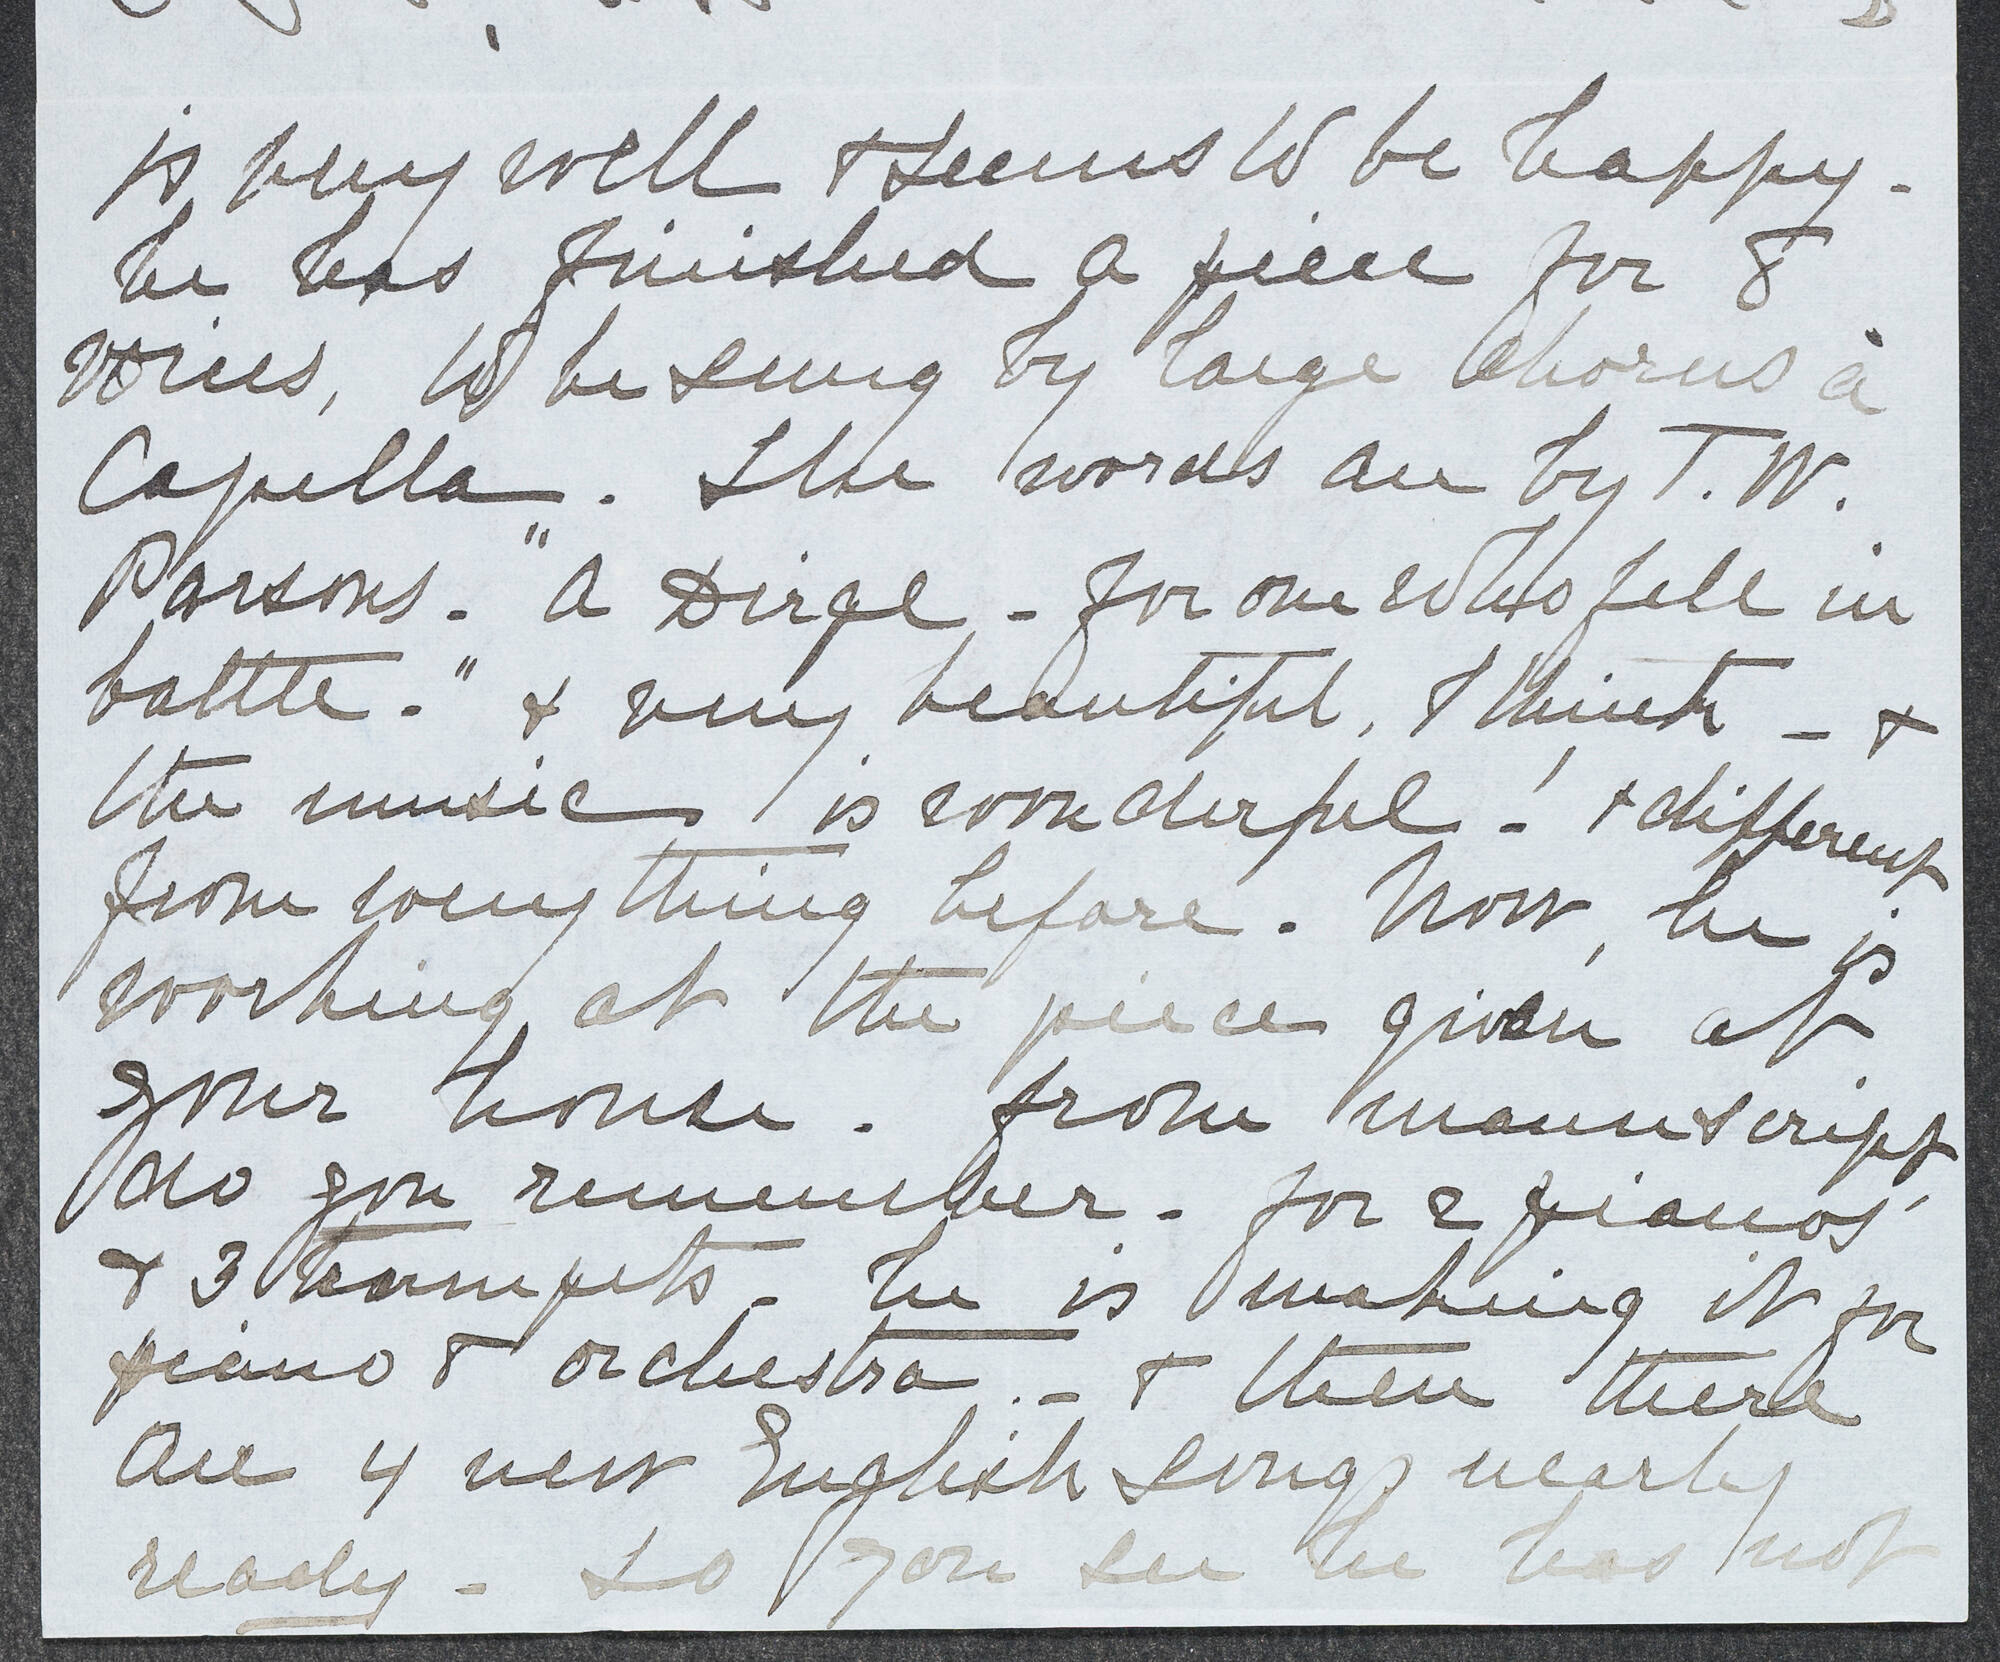 is very well & seems to be happy -
he has finished a piece for 8
voices, to be sung by large chorus à
Capella. The words are by T. W.
Parsons. "A Dirge - for one who fell in
battle." & very beautiful, I think - &
the music is wonderful! & different
from everything before. Now, he is
working at the piece given at
your house. from manuscript,
do you remember - for 2 pianos
& 3 trumpets - he is making it for
piano & orchestra. - & then there
are 4 new English songs nearly
ready - So you see he has not